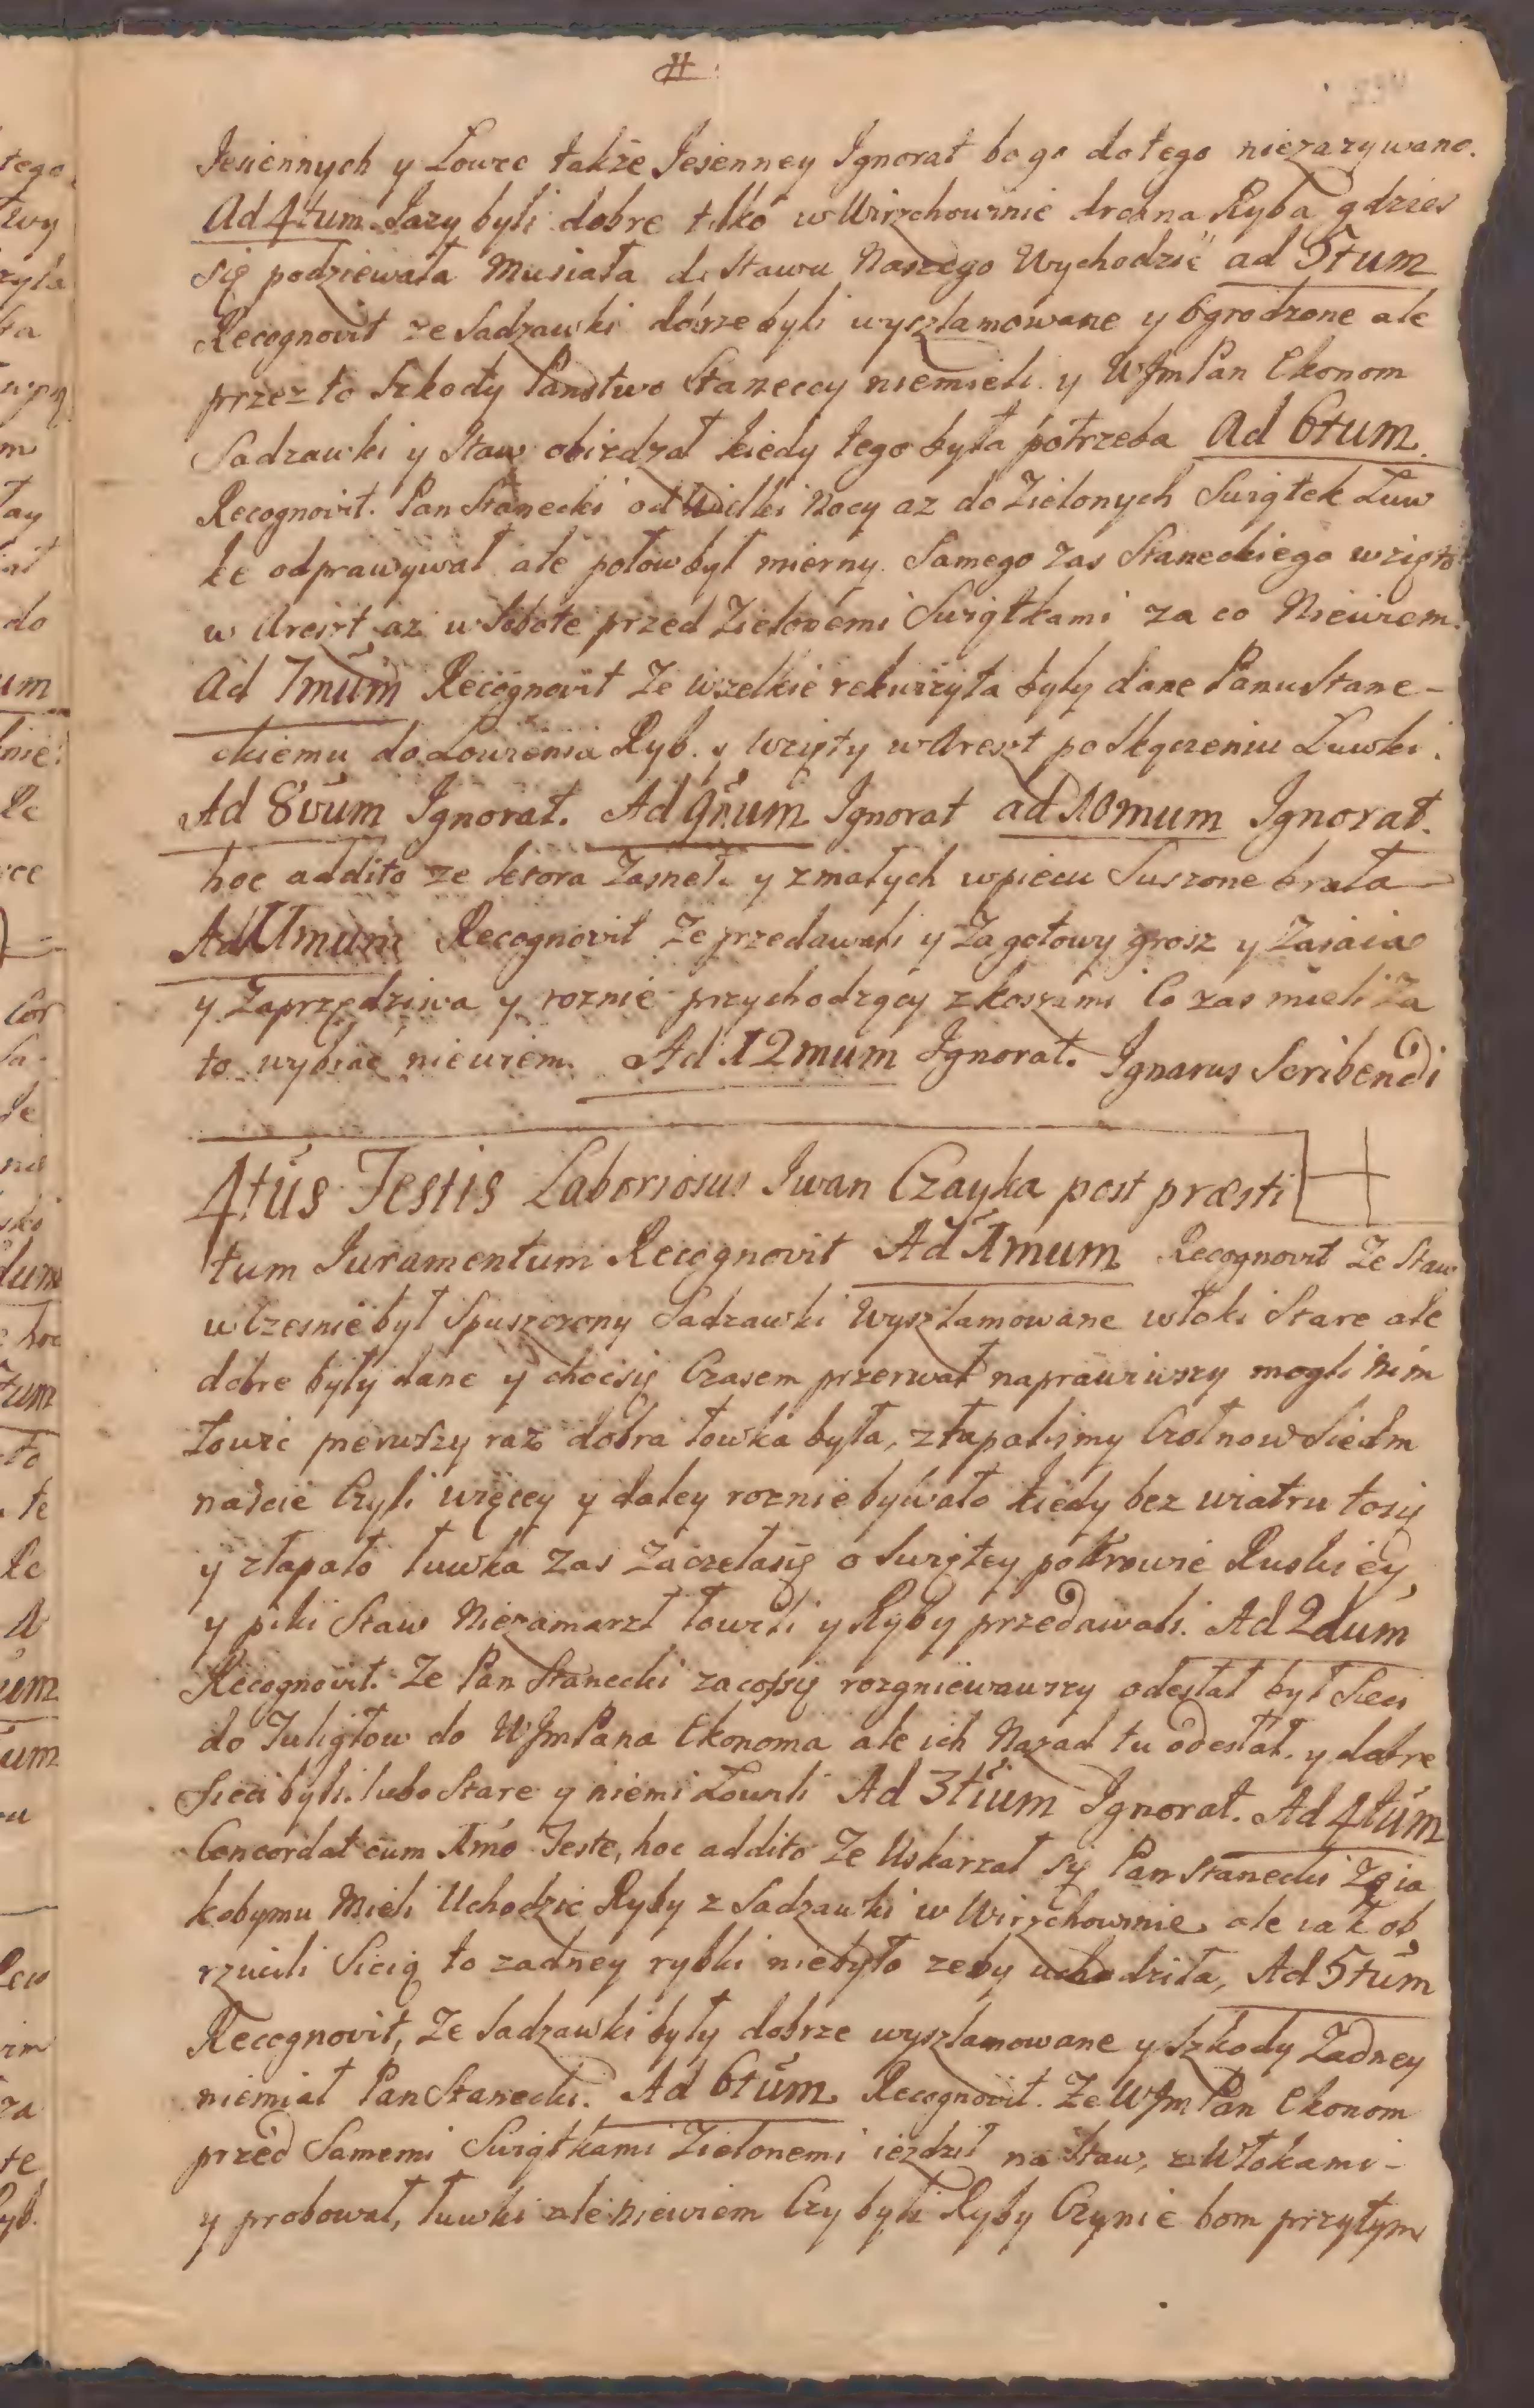 Jesiennych y Łowce także Jesienney Ignorat bo go do tego niezazywano.
Ad 4tum Jazy byli dobre tilko w Wirzchowinie drobna Ryba gdzies
się podziewała Musiała do Stawu Naszego Wychodzić ad 5tum
Recognovit ze Sadzawki dobrze byli wyszlamowane y Ogrodzone ale
przez to Szkody Panstwo Staneccy niemieli y WJmPan Ekonom
Sadzawki y Staw obiezdzał kiedy tego była potrzeba Ad 6tum
Recognovit. Pan Stanecki od Wielki Nocy az do Zielonych Swiątek Łuw
ke odprawywał ale połow był mierny. Samego zas Staneckiego wzięto
w Areszt az w Sobote przed Zielonemi Swiątkami za co Niewiem.
Ad 7mum Recognovit Ze wszelkie rekwizyta były dane Panu Stane-
ckiemu do Łowienia Ryb. y wzięty w Areszt po skączeniu Łuwki.
Ad 8vum Ignorat. Ad 9num Ignorat ad 10mum Ignorat.
hoc addito ze y z małych w piecu Suszone brała
Ad 11mum Recognovit Ze przedawali y Za gotowy grosz y Za iaia
y Za przędziwa y roznie przychodzący z koszami Co zas mieli Za
to wybrac niewiem. Ad 12mum Ignorat. Ignarus Scribendi
4tus Testis Laboriosus Iwan Czayka post præsti
tum Juramentum Recognovit Ad 1mum Recognovit Ze Staw
wczesnie był Spuszczony Sadzawki Wyszlamowane włoki Stare ale
dobre były dane y choc się Czasem przerwał naprawiwszy mogli Nim
Łowic pierwszy raz dobra łowka była, złapalismy Czołnow Siedm
nascie Czyli więcey y daley roznie bywało kiedy bez wiatru to się
y złapało łuwka zas zaczeła się o Swiętey pokrowie Ruskiey,
y piki Staw Niezamarzł łowili y Ryby przedawali. Ad 2dum
Recognovit. Ze Pan Stanecki za cossię rozgniewawszy odesłał był Sieci
do Tuligłow do WJmPana Ekonoma ale ich Nazad tu odesłał. y dobre
Sieci byli. lubo Stare y niemi Łowili Ad 3tium Ignorat. Ad 4tum
Concordat cum 1mo Teste, hoc addito Ze Uskarzał się Pan Stanecki Ze ia
kobymu Mieli Uchodzic Ryby z Sadzawki w Wirzchowinie, ale iak ob
rzucili Siecią to zadney rybki niebyło zeby uchodziła, Ad 5tum
Recognovit, Ze Sadzawki były dobrze wyszlamowane y Szkody Zadney
niemiał Pan Stanecki. Ad 6tum Recognovit. Ze WJmPan Ekonom
przed Samemi Swiątkami Zielonemi iezdził na Staw, z Włokami-
y probował, łuwki ale niewiem Czy byli Ryby Czynie bom przytym